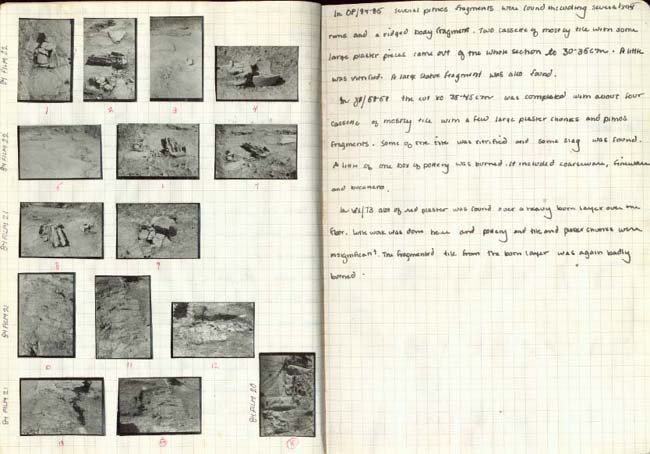 84 FILM 22
1
2
3
4
84 FILM 22
5
6
7
84 FILM 21
8
9
84 FILM 21
10
11
12
84 FILM 21
84 FILM 20
In OP/84-85 several pithos fragments were found including several
rims and a ridged body fragment. Two cassette of mostly tile with some
large plaster pieces came out of the whole section to 30-35cm. A little
was vitrified. A large statue fragment was also found.
the cut to 35-45cm was completed with about four
cassette of mostly tile with a few large plaster chunks and pithos
fragments. Some of the tile was vitrified and some slag was found.
A little of one box of pottery was burned. It included coarseware, fineware
and bucchero.
a lot of red plaster was found over a heavy burn layer over the
floor. Little work was done here and pottery and tile and plaster chunks were
insignificant. The fragmented tile from the burn layer was again badly
burned.